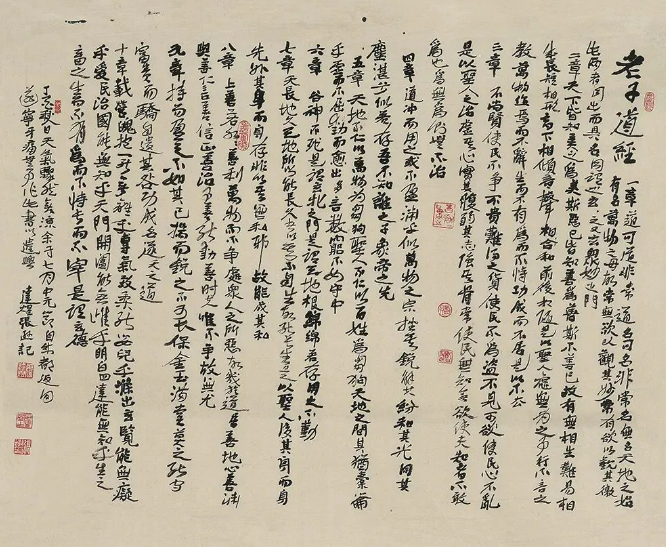 老子道經 一章道可道非常道名可名非常名無名天地之始
有名萬物之母故常無欲以觀其妙常有欲以觀其徼
此兩者同出而異名同謂之玄玄之又玄衆妙之門
二章天下皆知美之為美斯惡已皆知善為善斯不善已故有無相生難易相
成長短相形高下相傾音聲相合前後相隨是以聖人處無為之事行不言之
教萬物作焉而不辭生而不有為而不恃功成而不居是以不去
三章不尚賢使民不爭不貴難得之貨使民不為盜不見可欲使民心不亂
是以聖人之治虛其心實其腹弱其志強其骨常使民無知無欲使夫知者不敢
為也為無為則無不治
四章道沖而用之或不盈淵乎似萬物之宗挫其銳解其紛和其光同其
塵湛兮似或存吾不知誰之子象帝之先
五章天地不仁以萬物為芻狗聖人不仁以百姓為芻狗天地之間其猶橐籥
乎虛而不屈動而愈出多言數窮不如守中
六章谷神不死是謂玄牝玄牝之門是謂天地根綿綿若存用之不勤
七章天長地久天地所以能長久者以其不自生故能長生是以聖人後其身而身
先外其身而身存非以其無私邪故能成其私
八章上善若水水善利萬物而不爭處衆人之所惡故幾於道居善地心善淵
與善仁言善信政善治事善能動善時夫惟不爭故無尤
九章持而盈之不如其已揣而銳之不可長保金玉滿堂莫之能守
富貴而驕自遺其咎功成名遂天之道
十章載營魄抱一能無離乎專氣致柔能嬰兒乎滌除玄覽能無疵
乎愛民治國能無知乎天門開闔能為雌乎明白四達能無知乎生之
畜之生而不有為而不恃長而不宰是謂玄德